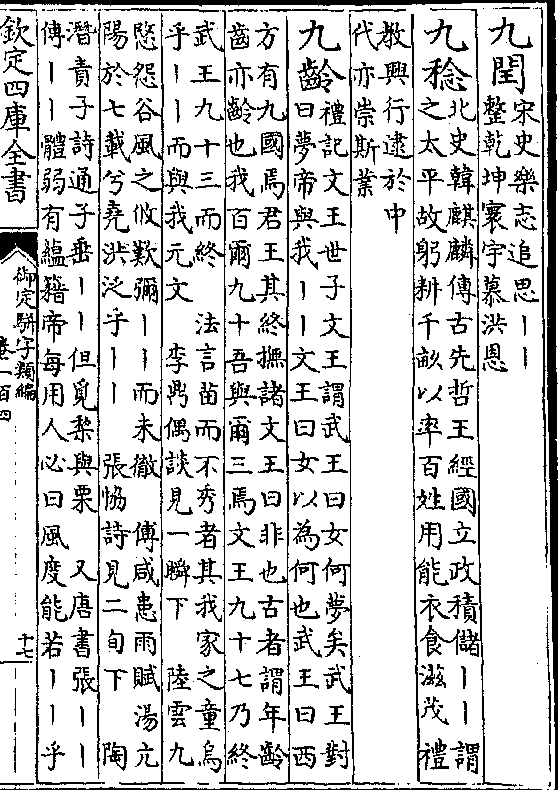 九閏 宋史樂志追思丨丨
整乾坤寰宇慕洪恩
九稔 北史韓麒麟傳古先哲王經國立政積儲丨丨謂
之太平故躬耕千畝以率百姓用能衣食滋茂禮
教興行逮於中
代亦崇斯業
九齡 禮記文王世子文王謂武王曰女何夢矣武王對
曰夢帝與我丨丨文王曰女以為何也武王曰西
方有九國焉君王其終撫諸文王曰非也古者謂年齡
齒亦齡也我百爾九十吾與爾三焉文王九十七乃終
武王九十三而終 法言苗而不秀者其我家之童烏
乎丨丨而與我元文 李鼎偶談見一瞬下 陸雲九
愍怨谷風之攸歎彌丨丨而未徹 傅咸患雨賦湯亢
陽於七載兮堯洪泛乎丨丨 張協詩見二旬下 陶
潛責子詩通子垂丨丨但覓棃與栗 又唐書張丨丨
傳丨丨體弱有蘊籍帝每用人必曰風度能若丨丨乎
欽定四庫全書
御定駢字類編
卷一百四
十七